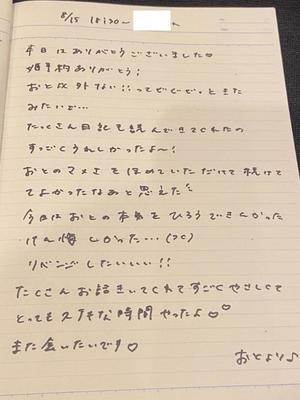 8/15 18:30〜
本日はありがとうございました♡
ありがとう!
おと以外ない!!ってぞくぞくっときた
みたいで…
たっくさん日記も読んできてくれたの
すっごくうれしかったよ〜!
おとのマメさをほめていただけて続けて
てよかったなあと思えた
今日はおとの本気をひろうできなかった
しかった…(つく)
リベンジしたいいい!!
たくさんお話きいてくれてすごくやさしくて
とってもステキな時間やったよ♡♡
また会いたいです♡
おとより♪